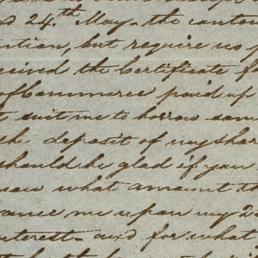 d 24.th May. the conton
ntion, but require us p
ceived the Certificate fo
of Commerce paid up
t suit me to borrow some
the deposit of my shar
should be glad if you
now what amount th
vance me upon my 2
nterest. and for what